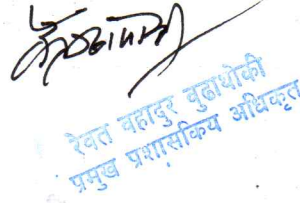 रेवत बहादुर बुढाथोकी
प्रमुख प्रशासकिय अधिकृत